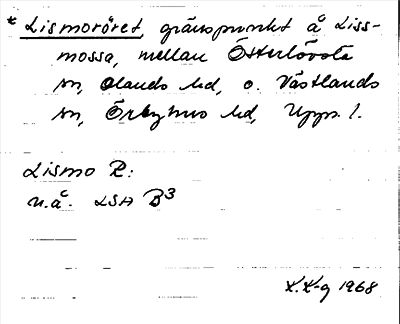 * Lismoröret, gränspunkt å Liss-
mossa, mellan Österlövsta
sn, Olands hd, o. Västlands
sn, Örbyhus hd, Upps. l.
Lismo R:
u.å. LSA B3
K.K-g 1968